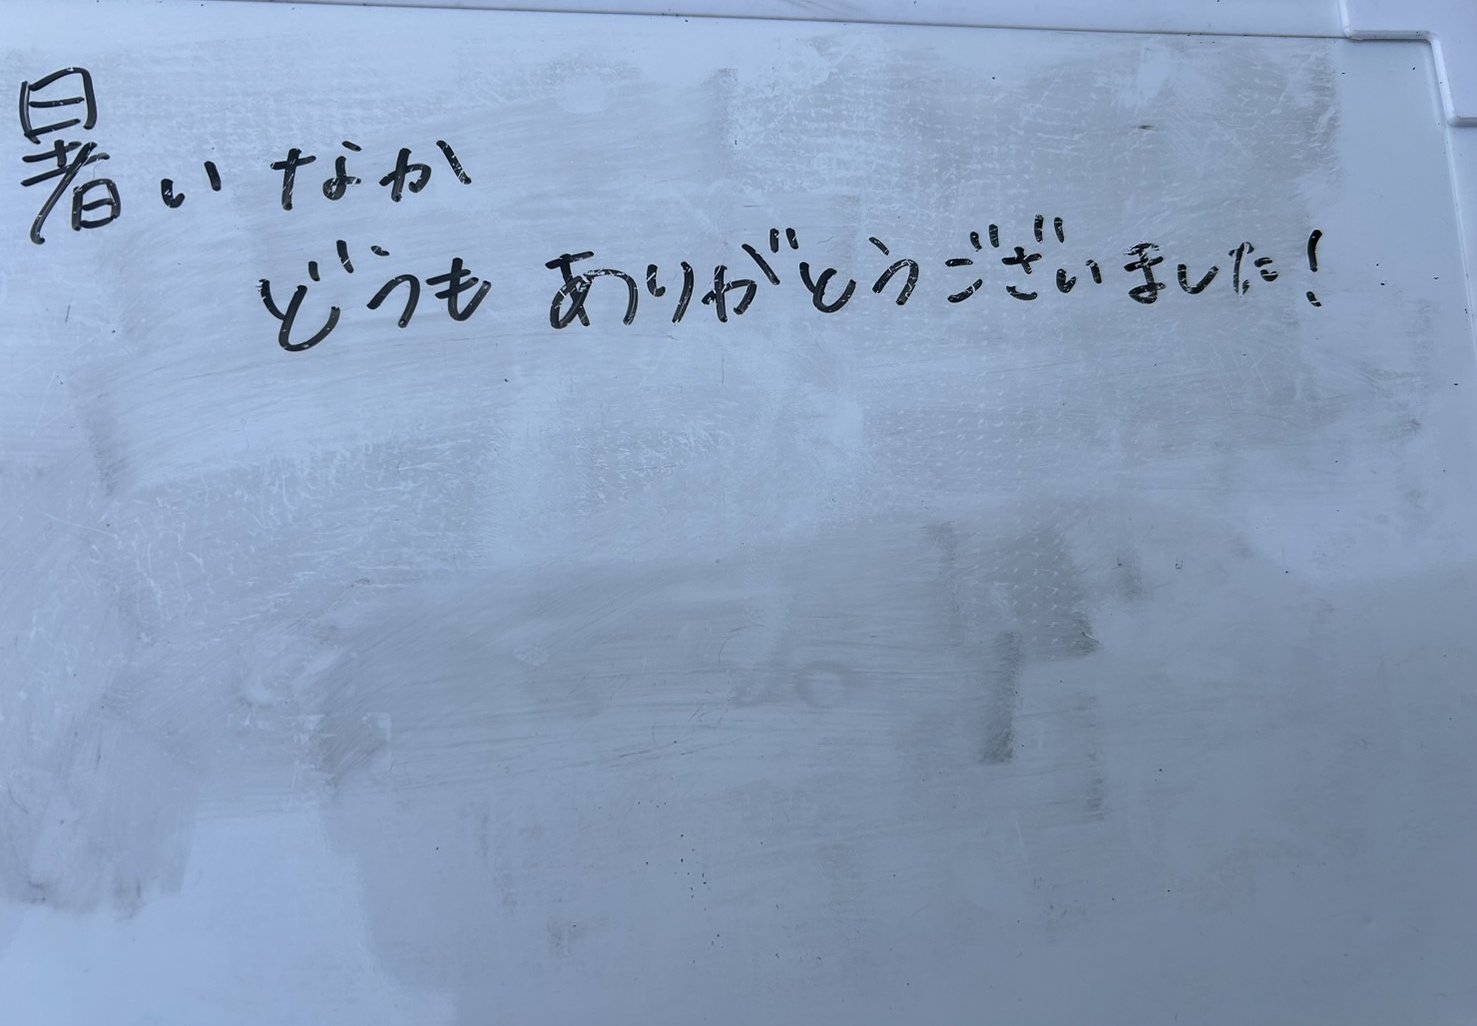 暑いなか
どうもありがとうございました!